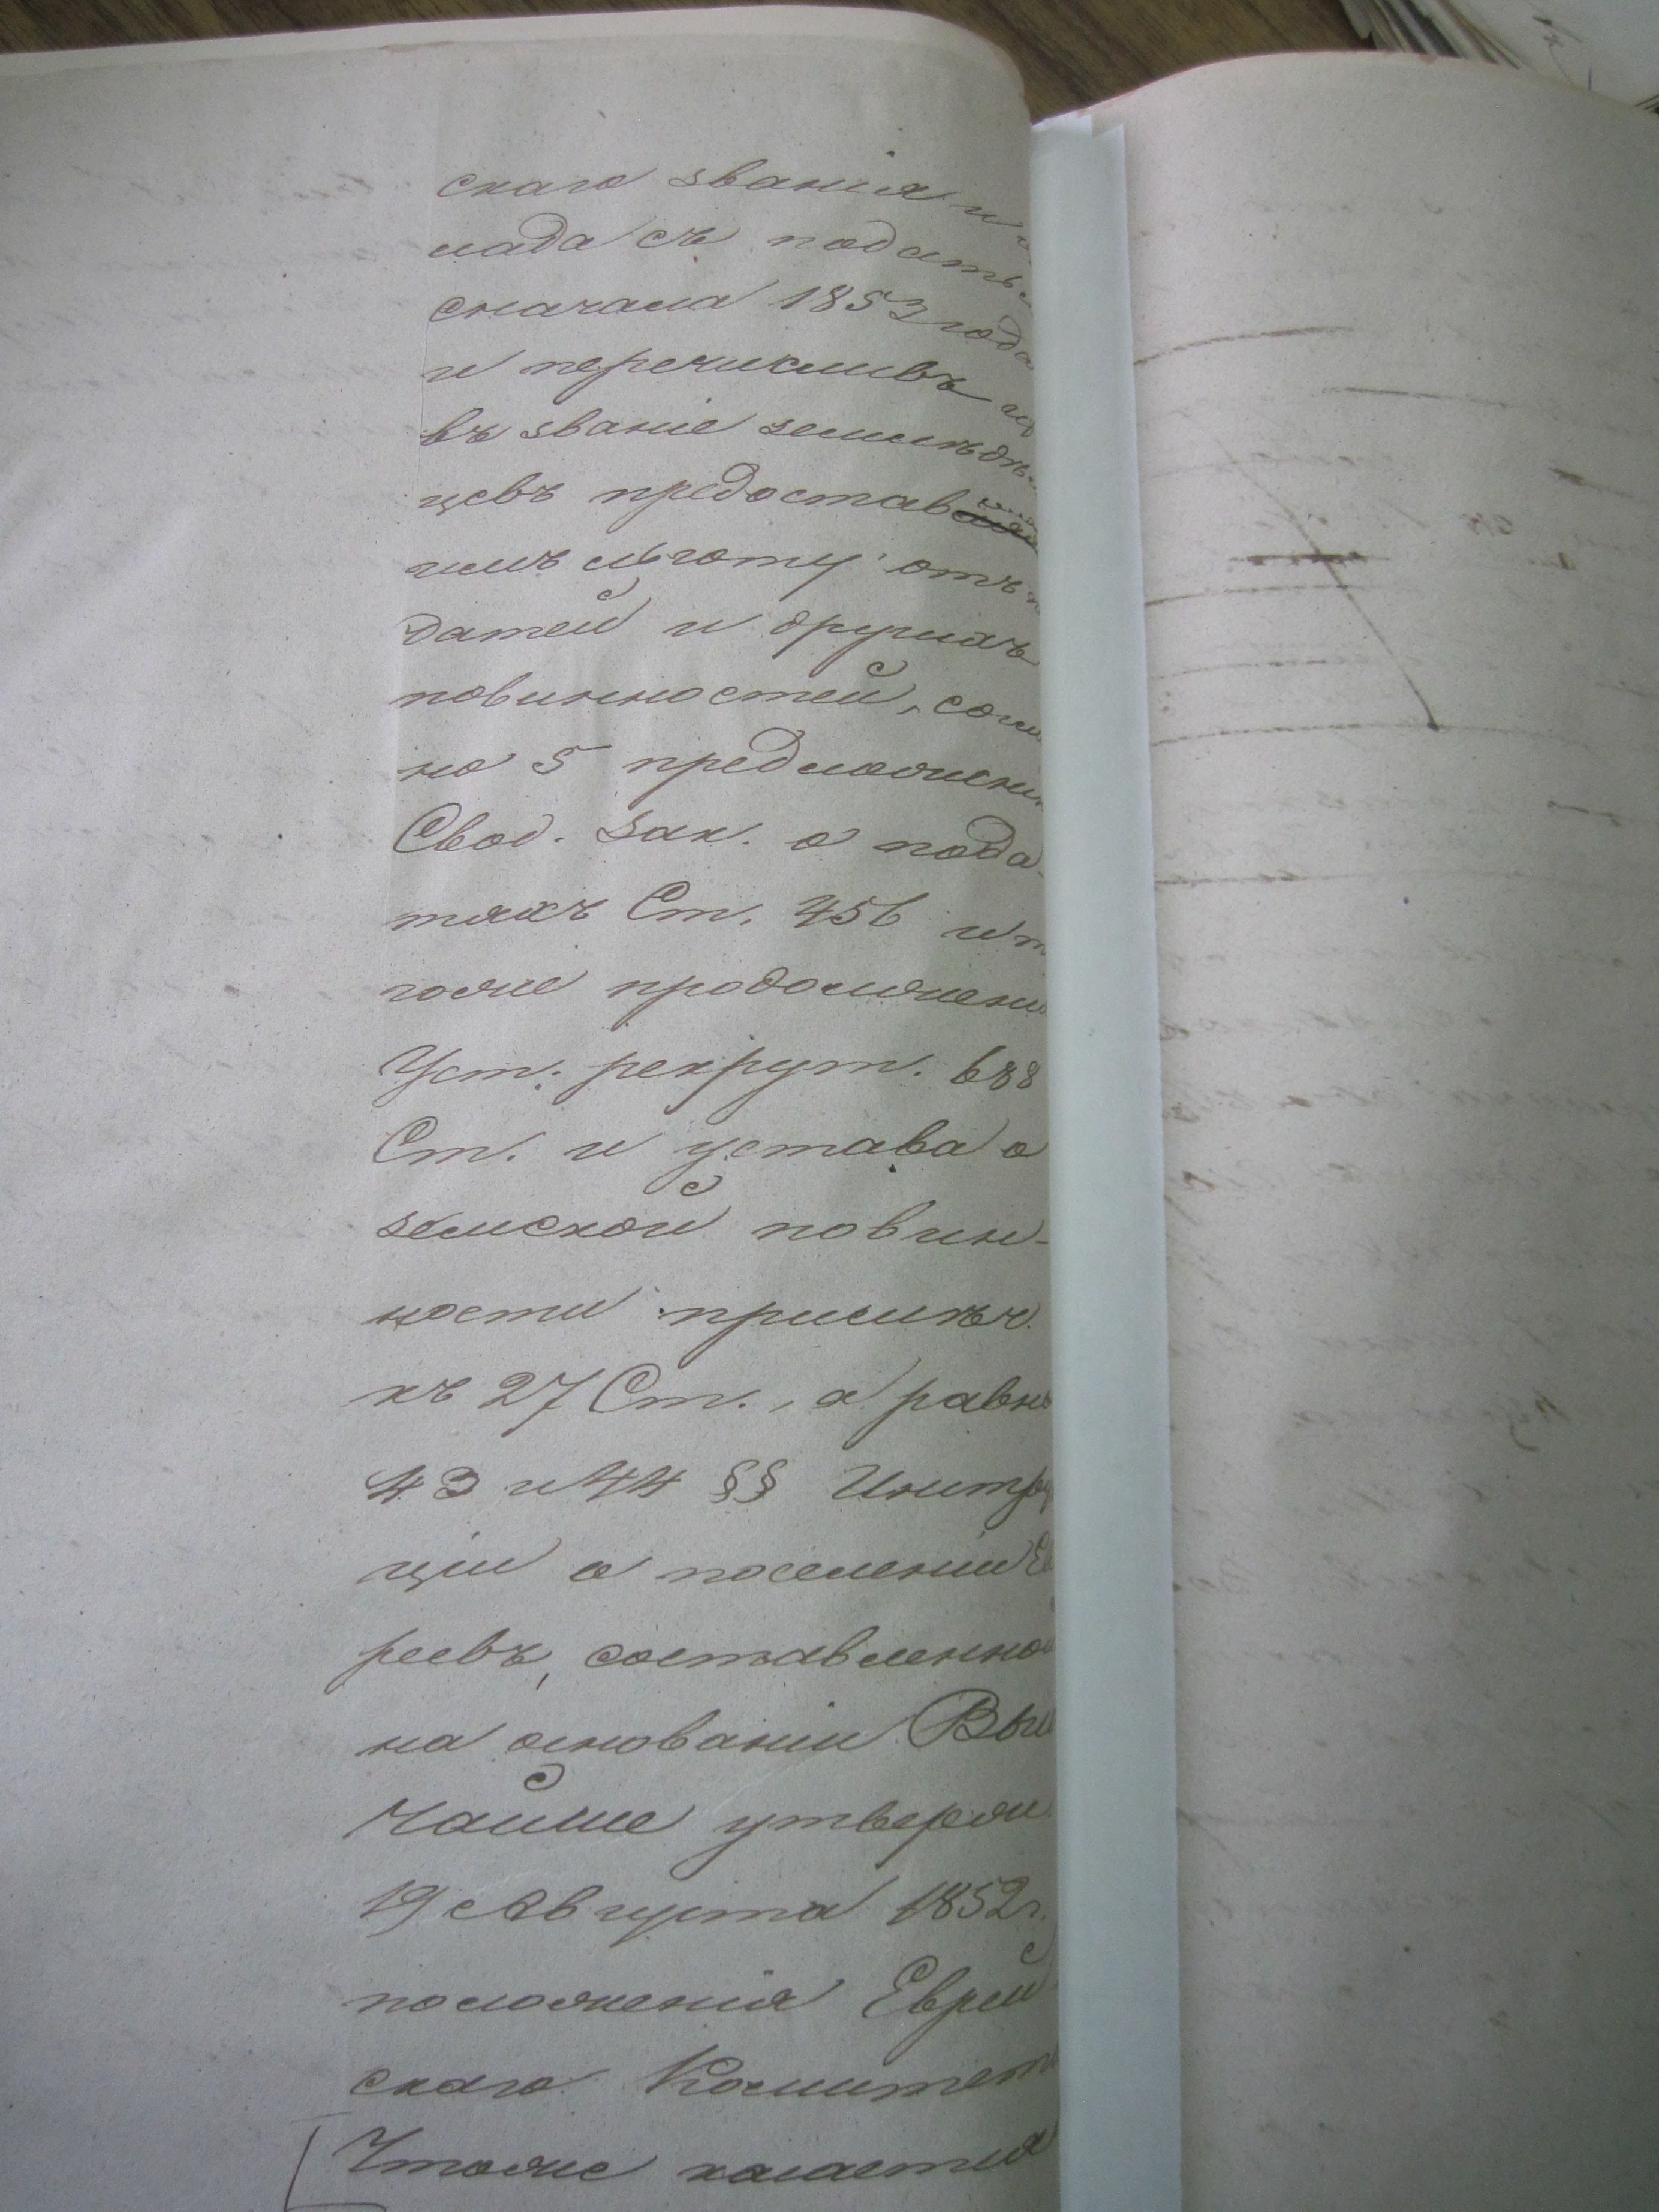 скаго званія и о
лада съ податью
сначала 1853 года
и перечисливъ их
въ званіе земледѣ
цевъ предостав
имъ льготу отъ п
датей и другихъ
повинностей, согл
но 5 предложени
Свод. Зак. о пода-
тяхъ Ст. 456 и т
гоже продолжени
Уст. рекрут. 688
Ст. и устава о
земской повин-
ности примѣч.
къ 27 Ст., а равно
43 и 44 §§ Инстру
ціи о поселеніи Ев
реевъ, составленной
на основаніи Высо
чайше утвержд.
19 Августа 1852 г.
положенія Еврей
скаго Комитет
Чтоже касается